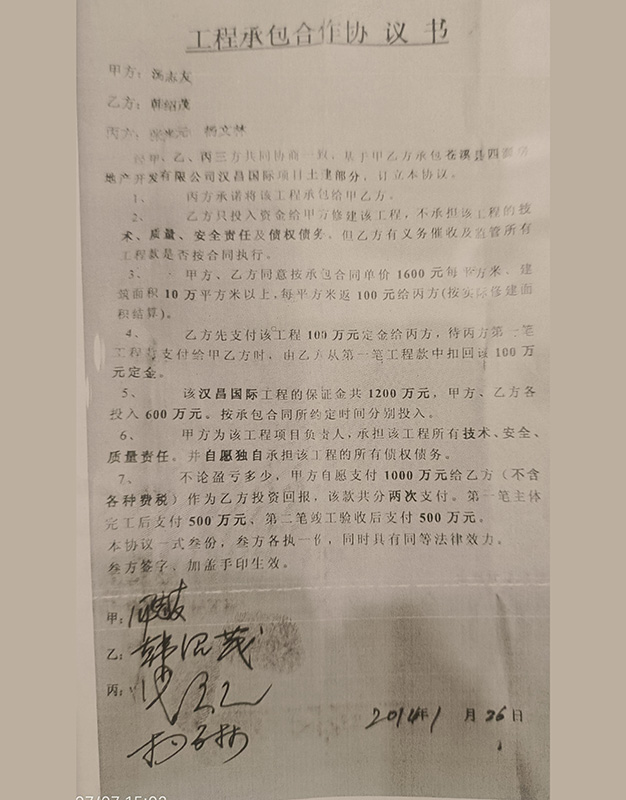 工程承包合作协 议 书
甲方：汤志友
乙方：韩绍茂
丙方：张光元 杨文林
经甲、乙、丙三方共同协商一致，基于甲乙方承包苍溪县四海房
地产开发有限公司汉昌国际项目土建部分，订立本协议。
1、 丙方承诺将该工程承包给甲乙方。
2、 乙方只投入资金给甲方修建该工程，不承担该工程的技
术、质量、安全责任及债权债务。但乙方有义务催收及监管所有
工程款是否按合同执行。
3、 甲方、乙方同意按承包合同单价 1600 元每平方米、建
筑面积 10 万平方米以上，每平方米返 100 元给丙方（按实际修建面
积结算）。
4、 乙方先支付该工程 100 万元定金给丙方，待丙方第一笔
工程款支付给甲乙方时，由乙方从第一笔工程款中扣回该 100 万
元定金。
5、 该汉昌国际工程的保证金共 1200 万元，甲方、乙方各
投入 600 万元。按承包合同所约定时间分别投入。
6、 甲方为该工程项目负责人，承担该工程所有技术、安全、
质量责任。并自愿独自承担该工程的所有债权债务。
7、 不论盈亏多少，甲方自愿支付 1000 万元给乙方（不含
各种费税）作为乙方投资回报，该款共分两次支付。第一笔主体
完工后支付 500 万元、第二笔竣工验收后支付 500 万元。
本协议一式叁份，叁方各执一份，同时具有同等法律效力。
叁方签字、加盖手印生效。
甲：
乙：韩绍茂
丙：
杨文林
2014年1 月 26 日